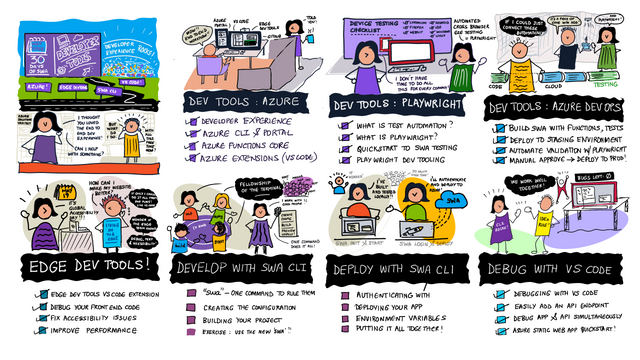 30
DAYS
OF SWA
DEVELOPER
TOOLS
DEVELOPER
EXPERIENCE ROCKS!
AZURE!
EDGE DEVTOOLS
SWA CLI
VS CODE
I THOUGHT
YOU LOVED
THE END TO
END DEV
EXPERIENCE?
CAN I HELP
WITH SOMETHING?
AZURE
PORTAL
VS CODE
EDGE
DEV TOOLS
TOLD
YOU!
DEV TOOLS : AZURE
DEVELOPER EXPERIENCE
AZURE CLI & PORTAL
AZURE FUNCTIONS CORE
AZURE EXTENSIONS (VS CODE)
DEVICE TESTING
CHECKLIST
AUTOMATED
CROSS BROWSER
E2E TESTING
= PLAYWRIGHT
I DON'T HAVE
TIME TO DO ALL
THIS FOR EVERY COMMIT
DEV TOOLS : PLAYWRIGHT
WHAT IS TEST AUTOMATION?
WHAT IS PLAYWRIGHT?
QUICKSTART TO SWA TESTING
PLAYWRIGHT DEV TOOLING
IF I COULD JUST
CONNECT THESE
AUTOMATICALLY
PLAYWRIGHT!
CODE
CLOUD
TESTING
DEV TOOLS : AZURE DEVOPS
BUILD SWA WITH FUNCTIONS, TESTS
DEPLOY TO STAGING ENVIRONMENT
AUTOMATE VALIDATION W/ PLAYWRIGHT
MANUAL APPROVE → DEPLOY TO PROD!
HOW CAN I
MAKE MY WEBSITE
BETTER?
IT'S
GLOBAL
ACCESSIBILITY
DAY!!!
EDGE DEV TOOLS!
EDGE DEV TOOLS VS CODE EXTENSION
DEBUG YOUR FRONT END CODE
FIX ACCESSIBILITY ISSUES
IMPROVE PERFORMANCE
FELLOWSHIP OF
THE TERMINAL
build
start
ONE COMMAND
DOES IT ALL!
DEVELOP WITH SWA CLI
"swa" – ONE COMMAND TO RULE THEM
CREATING THE CONFIGURATION
BUILDING YOUR PROJECT
EXERCISE : USE THE NEW SWA!
BUILT
AND READY
LOCALLY!
I'LL AUTHENTICATE
AND DEPLOY TO
SWA
SWA INIT & START
SWA LOGIN & DEPLOY
DEPLOY WITH SWA CLI
AUTHENTICATING WITH
DEPLOYING YOUR APP
ENVIRONMENT VARIABLES
PUTTING IT ALL TOGETHER!
WE WORK WELL
TOGETHER!
BUGS LEFT: 0
DEBUG WITH VS CODE
DEBUGGING WITH VS CODE
EASILY ADD AN API ENDPOINT
DEBUG APP & API SIMULTANEOUSLY
AZURE STATIC WEB APP QUICKSTART!